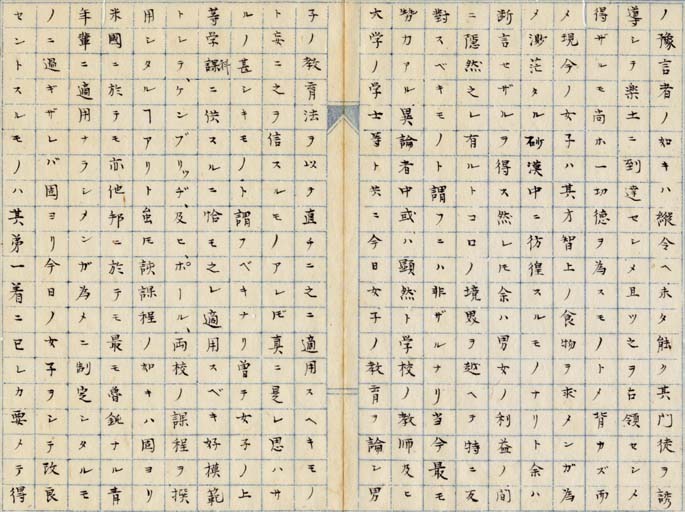 ノ豫言者ノ如キハ縱令ヘ未タ能ク其門徒ヲ誘
導シヲ楽土ニ到達セレメ且ツ之ヲ占領セシメ
得ザルモ尚ホ一功徳ヲ為スモノトメ背カズ而
メ現今ノ女子ハ其才智上ノ食物ヲ求メンガ為
メ渺茫タル砂漠中ニ彷徨スルモノナリト余ハ
断言セザルヲ得ス然レ𪜈余ハ男女ノ利益ノ間
ニ隠然之レ有ルトコロノ境界ヲ越ヘテ特ニ反
對スベキモノト謂フニハ非ザルナリ当今最モ
勢力アル異論者中或ハ顕然ト学校ノ教師及ヒ
大学ノ学士等ト共ニ今日女子ノ教育ヲ論シ男
子ノ教育法ヲ以テ直チニ之ニ適用スヘキモノ
ト妄ニ之ヲ信スルモノアレ𪜈真ニ是レ思ハサ
ルノ甚シキモノト謂フベキナリ曽テ女子ノ上
等学課科ニ供スルニ恰モ之レ適用スベキ好模範
トレテ、ケンブリッヂ、及ヒ、ボール、両校ノ課程ヲ撰
用シタルヿアリト雖モ該課程ノ如キハ固ヨリ
米國ニ於テモ亦他邦ニ於テモ最モ魯鈍ナル青
年輩ニ適用ナラシメンガ為メニ制定シタルモ
ノニ過ギザレバ固ヨリ今日ノ女子ヲシテ改良
セントスルモノハ其第一着ニ已レカ要メテ得